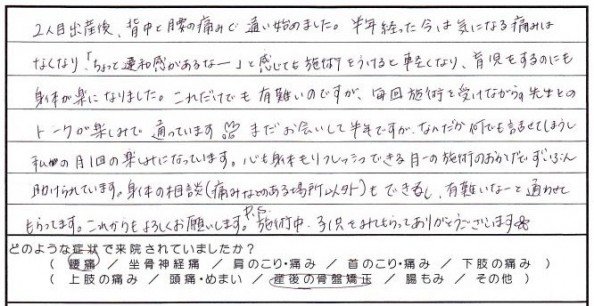 2人目出産後、背中と腰の痛みで通い始めました。半年経った今は気になる痛みは
なくなり、「ちょっと違和感があるなー」と感じても施術をうけると軽くなり、育児をするのにも
身体が楽になりました。これだけでも有難いのですが、毎回施術を受けながらの先生との
トークが楽しみで通っています まだお会いして半年ですが、なんだか何でも話せてしまうし
私の月1回の楽しみになっています。心も身体もリフレッシュできる月一の施術のおかげでずいぶん
助けられています。身体の相談(痛みなどのある場所以外)もできるし、有難いなーと通わせて
もらってます。これからもよろしくお願いします。P.S. 施術中、子供をみてもらってありがとうございます
どのような症状で来院されていましたか?
( 腰痛 / 坐骨神経痛 / 肩のこり・痛み / 首のこり・痛み / 下肢の痛み )
( 上肢の痛み / 頭痛・めまい / 産後の骨盤矯正 / 腸もみ / その他 )